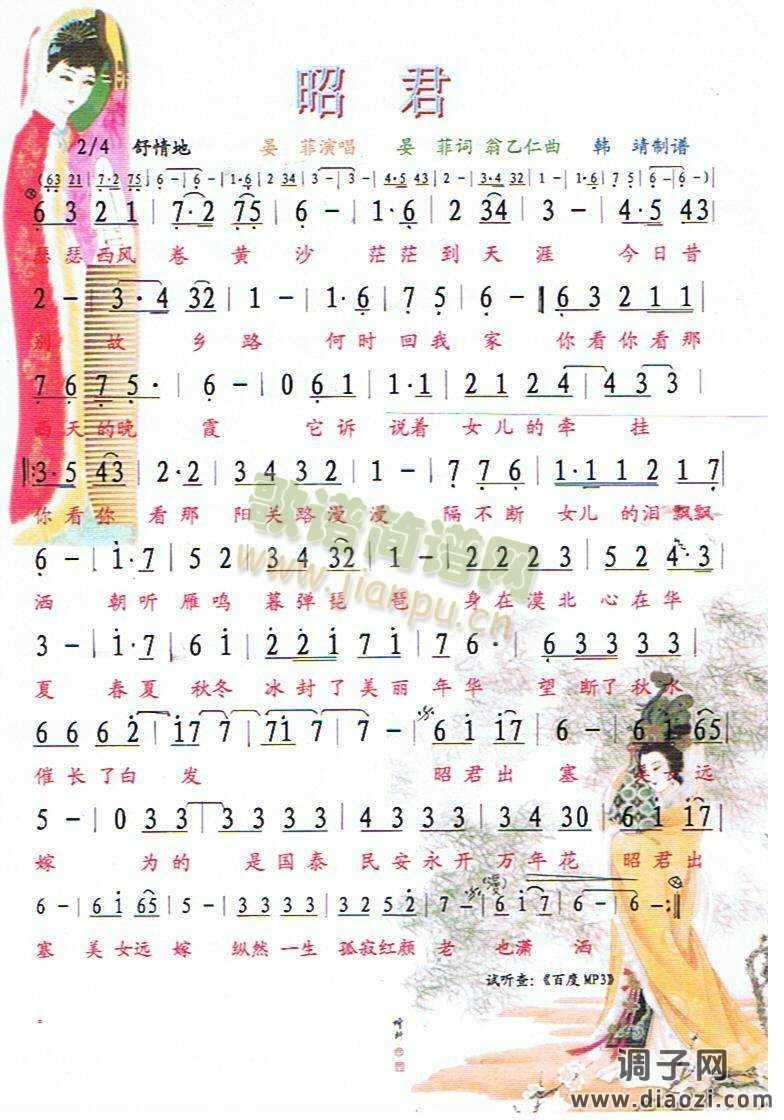 昭 君
2/4 舒情地 晏 菲演唱 晏 菲词 翁乙仁曲 韩 靖制谱
(63 21 | 7·2 75 | 6 – | 6 – | 1·6 | 2 34 | 3 – | 3 – | 4·5 43 | 2 – | 3·4 32 | 1 – | 1·6 | 7 5 | 6 – | 6 – |)
6 3 2 1 | 7·2 75 | 6 – | 1·6 | 2 34 | 3 – | 4·5 43 |
瑟瑟西风 卷 黄 沙 茫茫到天涯 今日昔
2 – | 3·4 32 | 1 – | 1·6 | 7 5 | 6 – ‖ 6 3 2 1 1 |
别 故 乡路 何时回我家 你看你看那
7 6 7 5· | 6 – | 0 6 1 | 1·1 | 2 1 2 4 | 4 3 3 |
西天的晚 霞 它诉 说着 女儿的牵 挂
‖: 3·5 43 | 2·2 | 3 4 3 2 | 1 – | 7 7 6 | 1·1 1 2 1 7 |
你看你 看那 阳关路漫漫 隔不断 女儿 的泪飘飘
6 – | i·7 | 5 2 | 3 4 32 | 1 – | 2 2 2 3 | 5 2 4·3 |
洒 朝听雁鸣 暮弹琵琶 身在漠北 心在华
3 – | i·7 | 6 i | 2 2 i 7 i | 7 6 – | 6 3 3 3 3 |
夏 春夏秋冬 冰封了美丽年华 望断了秋水
6 6 6 2 | i7 7 | 7i 7 7 | 7 – | 6 i i7 | 6 – | 6 i 65 |
催长了白 发 昭君出 塞 美女远
5 – | 0 3 3 | 3 3 3 3 | 4 3 3 3 | 3 4 30 | 6 i i7 |
嫁 为的 是国泰 民安永开 万年花 昭君出
6 – | 6 i 65 | 5 – | 3 3 3 3 | 3 2 5 2 | 7 – | 6 i 7 | 6 – | 6 – :‖
(漫)
塞 美女远 嫁 纵然一生 孤寂红颜 老 也潇 洒
试听查:《百度MP3》
歌谱简谱网
www.jianpu.cn
调子网
www.diaozi.com